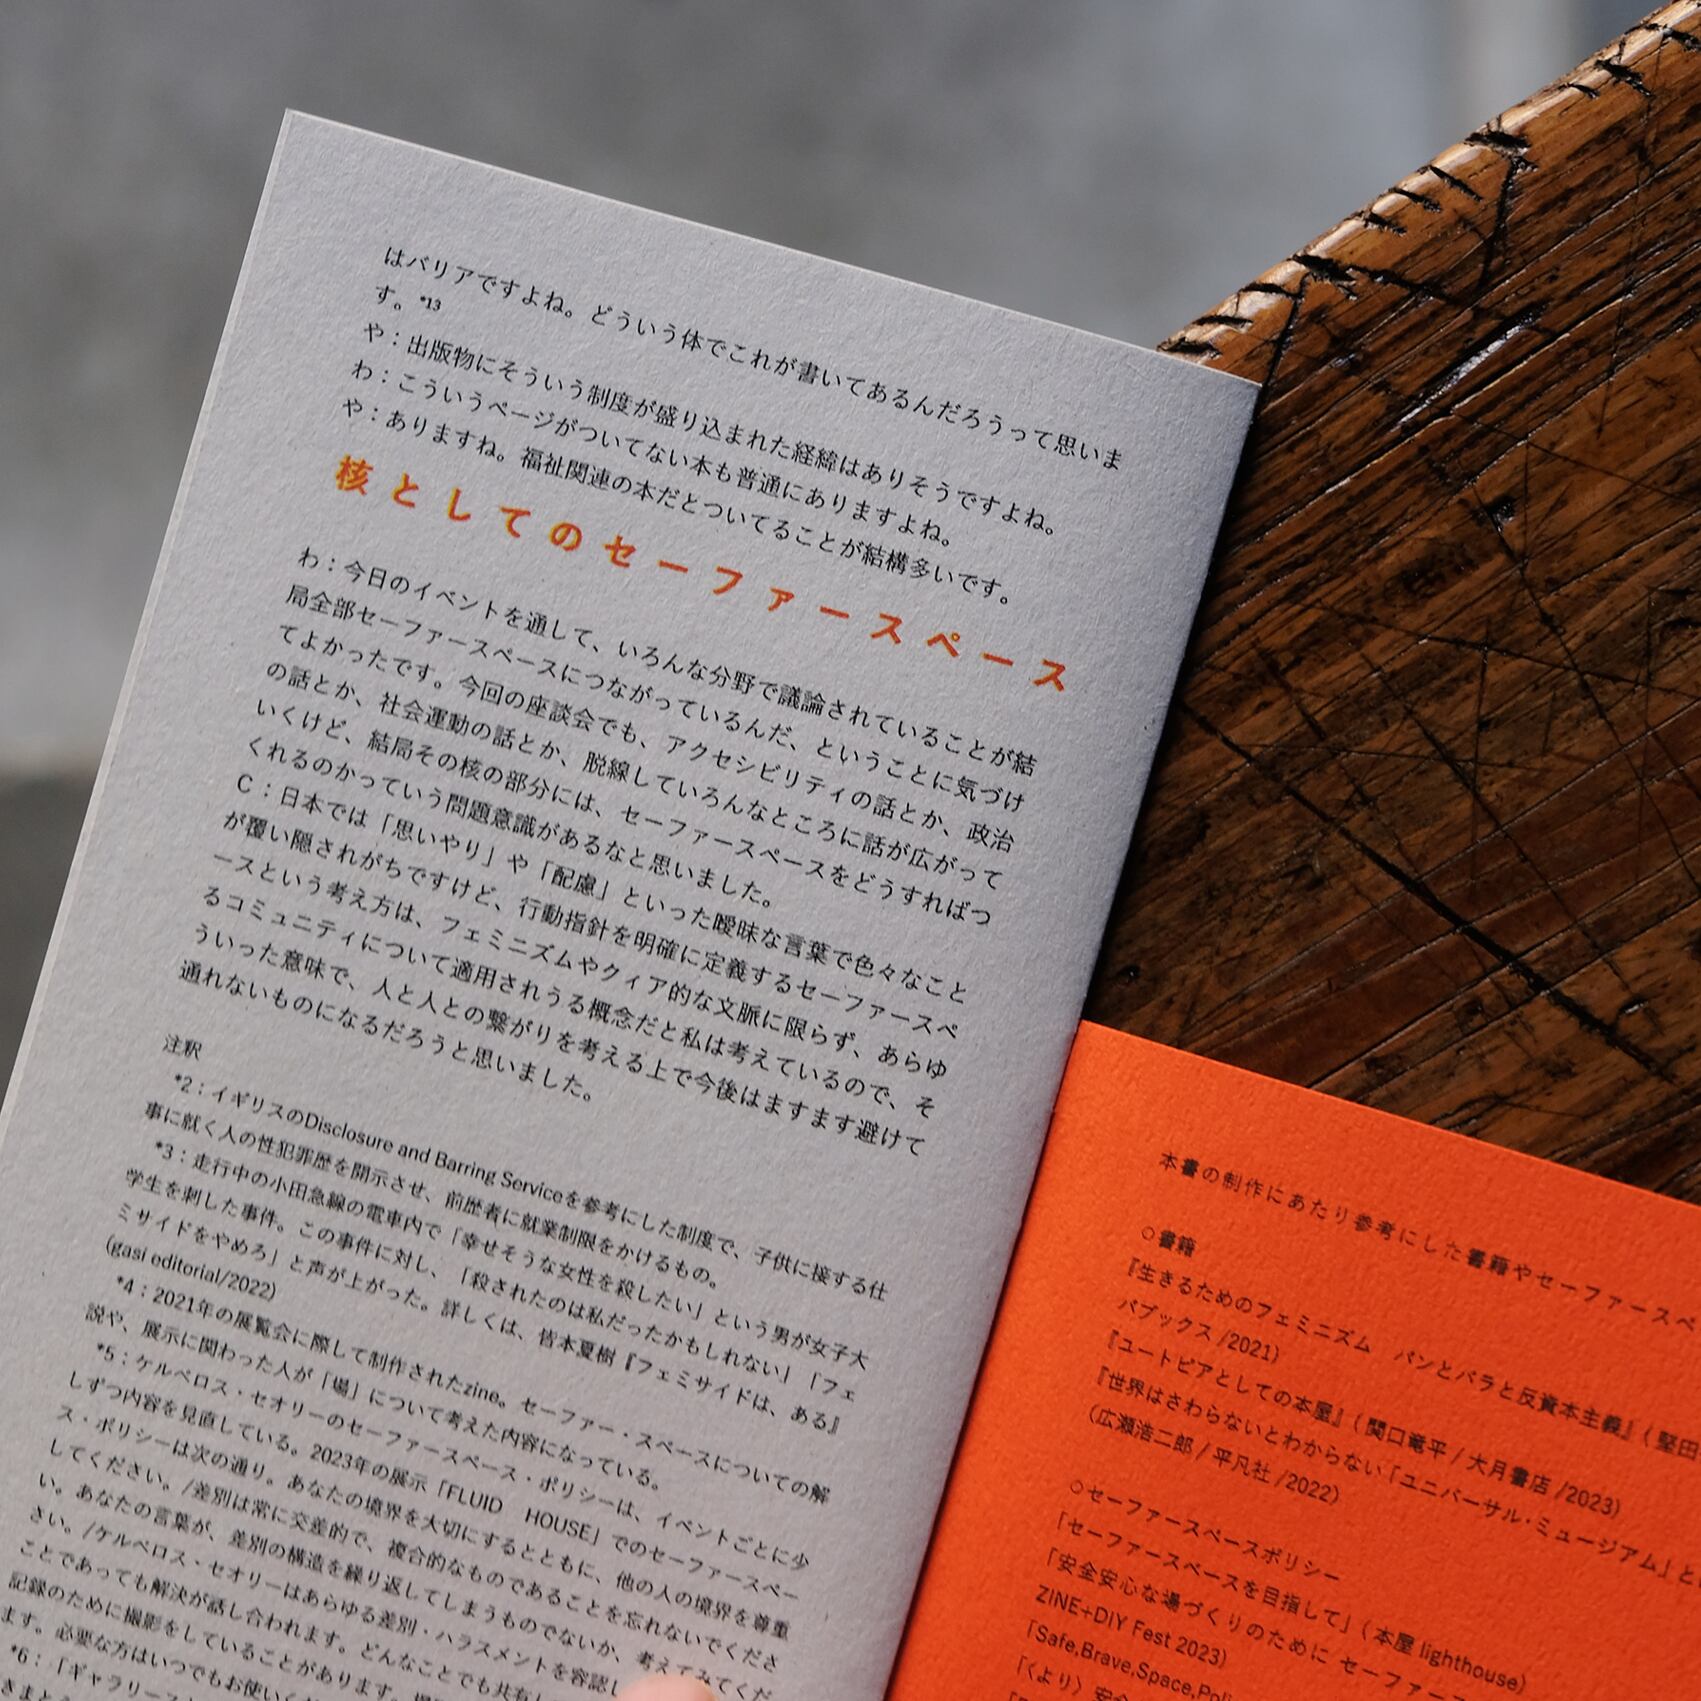 はバリアですよね。どういう体でこれが書いてあるんだろうって思いま
す。*13
や：出版物にそういう制度が盛り込まれた経緯はありそうですよね。
わ：こういうページがついてない本も普通にありますよね。
や：ありますね。福祉関連の本だとついてることが結構多いです。
核としてのセーファースペース
わ：今日のイベントを通して、いろんな分野で議論されていることが結
局全部セーファースペースにつながっているんだ、ということに気づけ
てよかったです。今回の座談会でも、アクセシビリティの話とか、政治
の話とか、社会運動の話とか、脱線していろんなところに話が広がって
いくけど、結局その核の部分には、セーファースペースをどうすればつ
くれるのかっていう問題意識があるなと思いました。
C：日本では「思いやり」や「配慮」といった曖昧な言葉で色々なこと
が覆い隠されがちですけど、行動指針を明確に定義するセーファースペ
ースという考え方は、フェミニズムやクィア的な文脈に限らず、あらゆ
るコミュニティについて適用されうる概念だと私は考えているので、そ
ういった意味で、人と人との繋がりを考える上で今後はますます避けて
通れないものになるだろうと思いました。
注釈
*2：イギリスのDisclosure and Barring Serviceを参考にした制度で、子供に接する仕
事に就く人の性犯罪歴を開示させ、前歴者に就業制限をかけるもの。
*3：走行中の小田急線の電車内で「幸せそうな女性を殺したい」という男が女子大
学生を刺した事件。この事件に対し、「殺されたのは私だったかもしれない」「フェ
ミサイドをやめろ」と声が上がった。詳しくは、皆本夏樹『フェミサイドは、ある』
(gasi editorial/2022)
*4：2021年の展覧会に際して制作されたzine。セーファー・スペースについての解
説や、展示に関わった人が「場」について考えた内容になっている。
*5：ケルベロス・セオリーのセーファースペース・ポリシーは、イベントごとに少
しずつ内容を見直している。2023年の展示「FLUID　HOUSE」でのセーファースペー
ス・ポリシーは次の通り。あなたの境界を大切にするとともに、他の人の境界を尊重
してください。/差別は常に交差的で、複合的なものであることを忘れないでくださ
い。あなたの言葉が、差別の構造を繰り返してしまうものでないか、考えてみてくだ
さい。/ケルベロス・セオリーはあらゆる差別・ハラスメントを容認し
ことであっても解決が話し合われます。どんなことでも共有し
記録のために撮影をしていることがあります。
ます。必要な方はいつでもお使いくだ
*6：「ギャラリース
本書の制作にあたり参考にした書籍やセーファースペ
○書籍
『生きるためのフェミニズム　パンとバラと反資本主義』（堅田
パブックス /2021）
『ユートピアとしての本屋』（関口竜平 / 大月書店 /2023）
『世界はさわらないとわからない「ユニバーサル・ミュージアム」と
（広瀬浩二郎 / 平凡社 /2022）
○セーファースペースポリシー
「セーファースペースを目指して」（本屋 lighthouse）
「安全安心な場づくりのために セーファー
ZINE+DIY Fest 2023）
「Safe,Brave,Space,Poli
「〈より〉安全